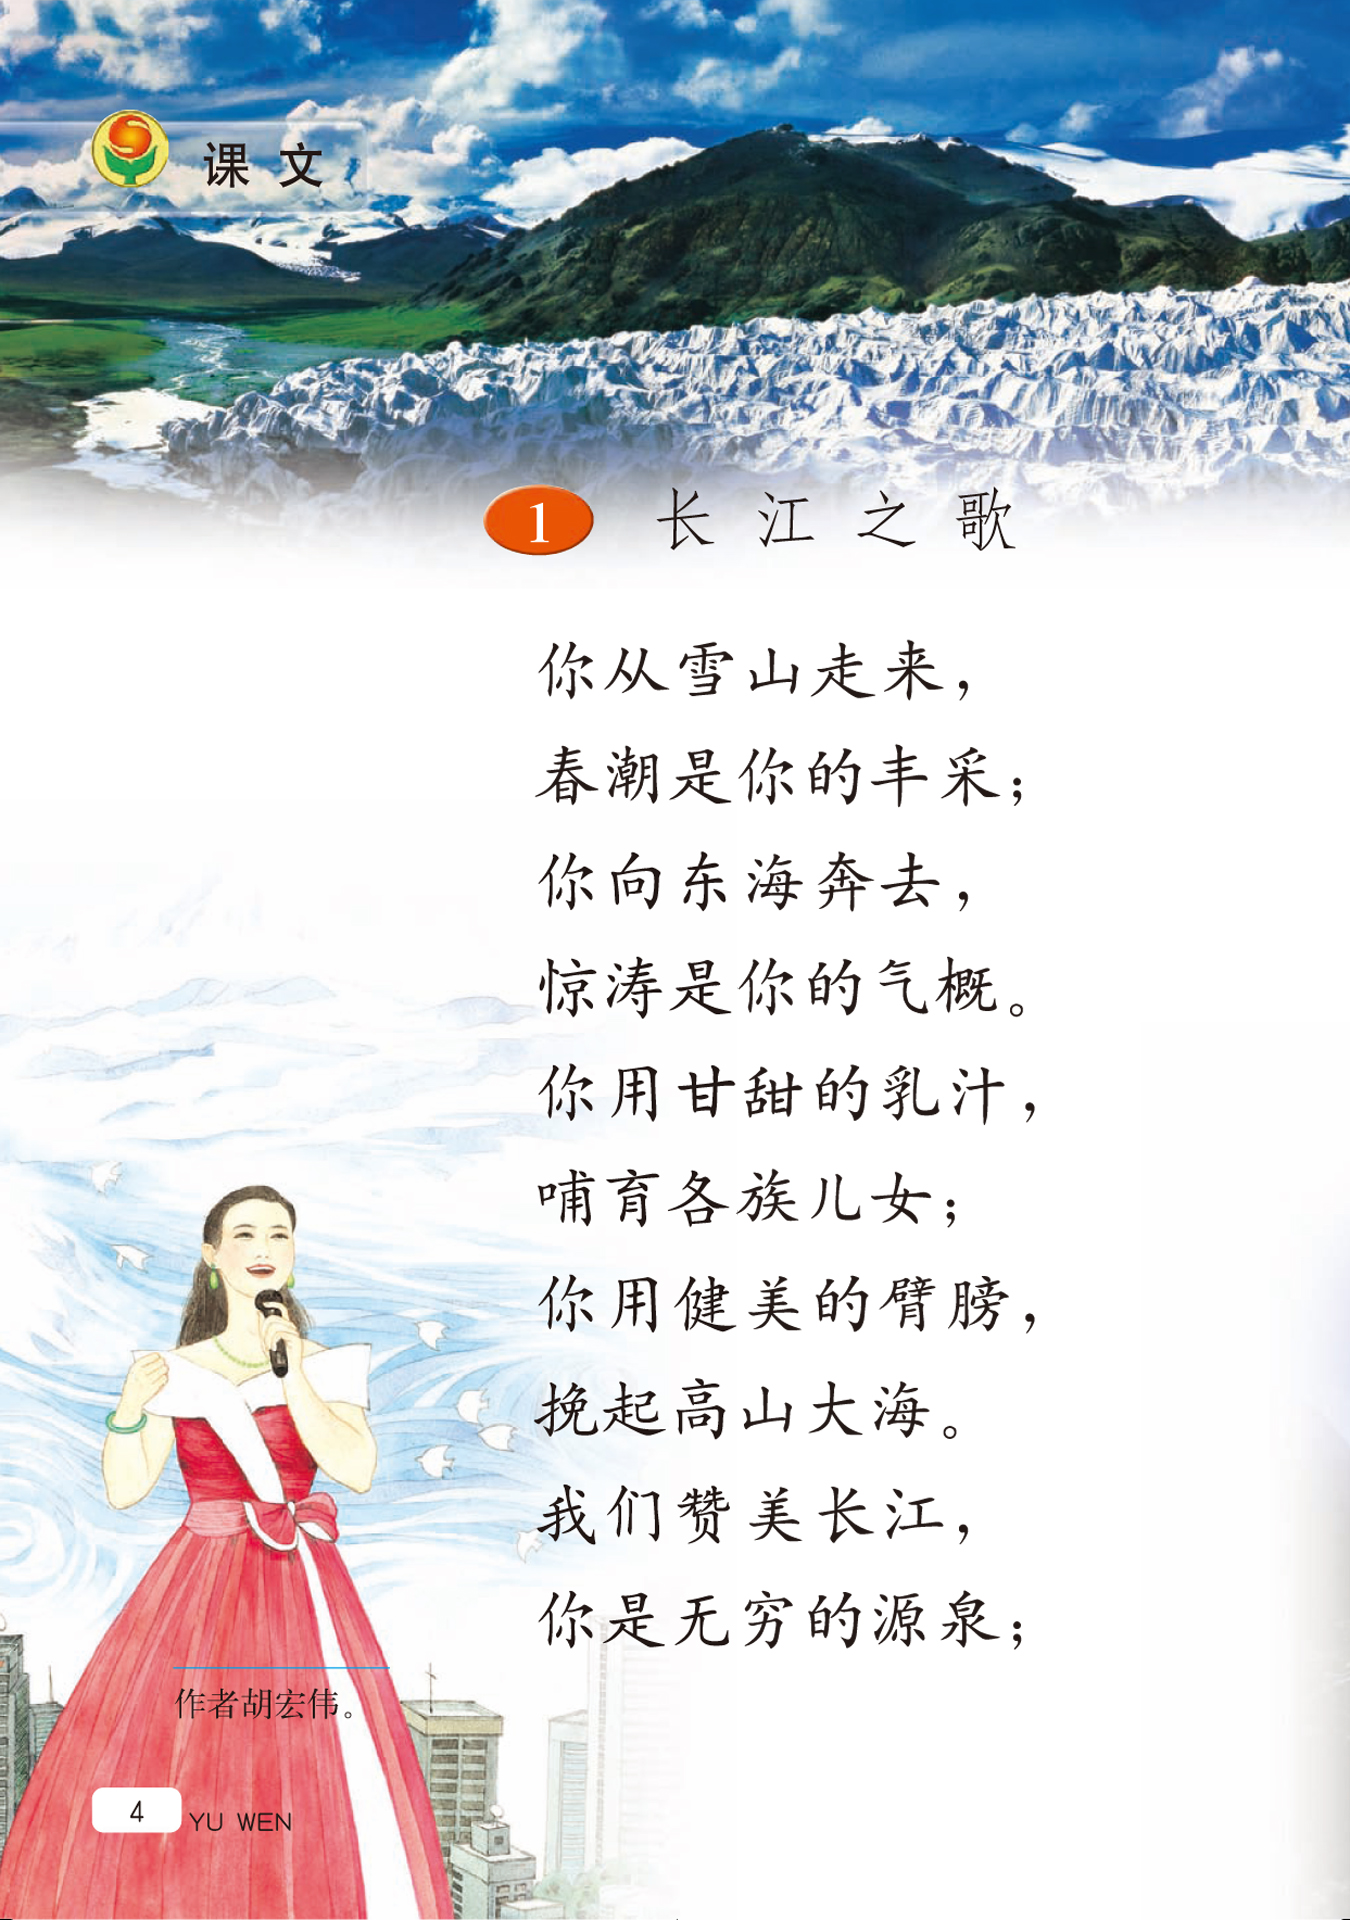 课文
1 长江之歌
你从雪山走来，
春潮是你的丰采；
你向东海奔去，
惊涛是你的气概。
你用甘甜的乳汁，
哺育各族儿女；
你用健美的臂膀，
挽起高山大海。
我们赞美长江，
你是无穷的源泉；
作者胡宏伟。
4 YU WEN